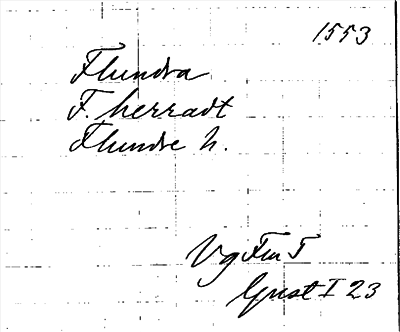 1553
Flundra
F. herradt
Flundre h.
Vg Fm T
Gust I 23